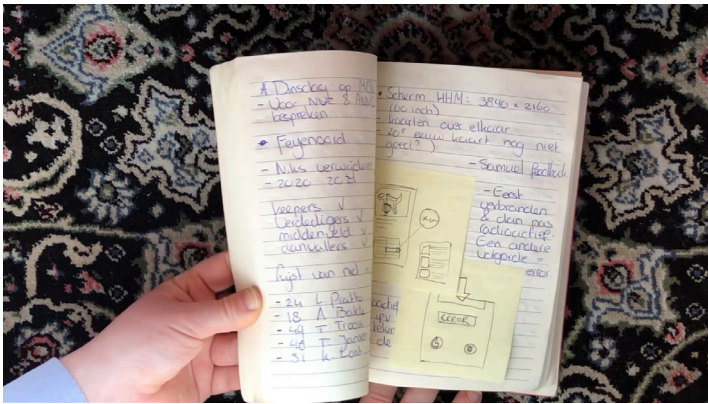 Dinsdag op
- Voor NVZ &
bespreken
Feyenoord
- Niks verwijderen
- 2020 - 2021
keepers ✓
verdedigers ✓
middenveld ✓
aanvallers ✓
lijst van
- 24 L. Pratto
- 18 A Balde
- 49 T Troost
- 48 T Jansen
- 51 K Kost
Scherm WHM: 3840 x 2160
kaarten over elkaar
20e eeuw kaart nog niet
goed?)
- Samuel feedback
- Eerst
verbranden
& dan pas
radioactief.
Een andere
volgorde =
error.
ERROR